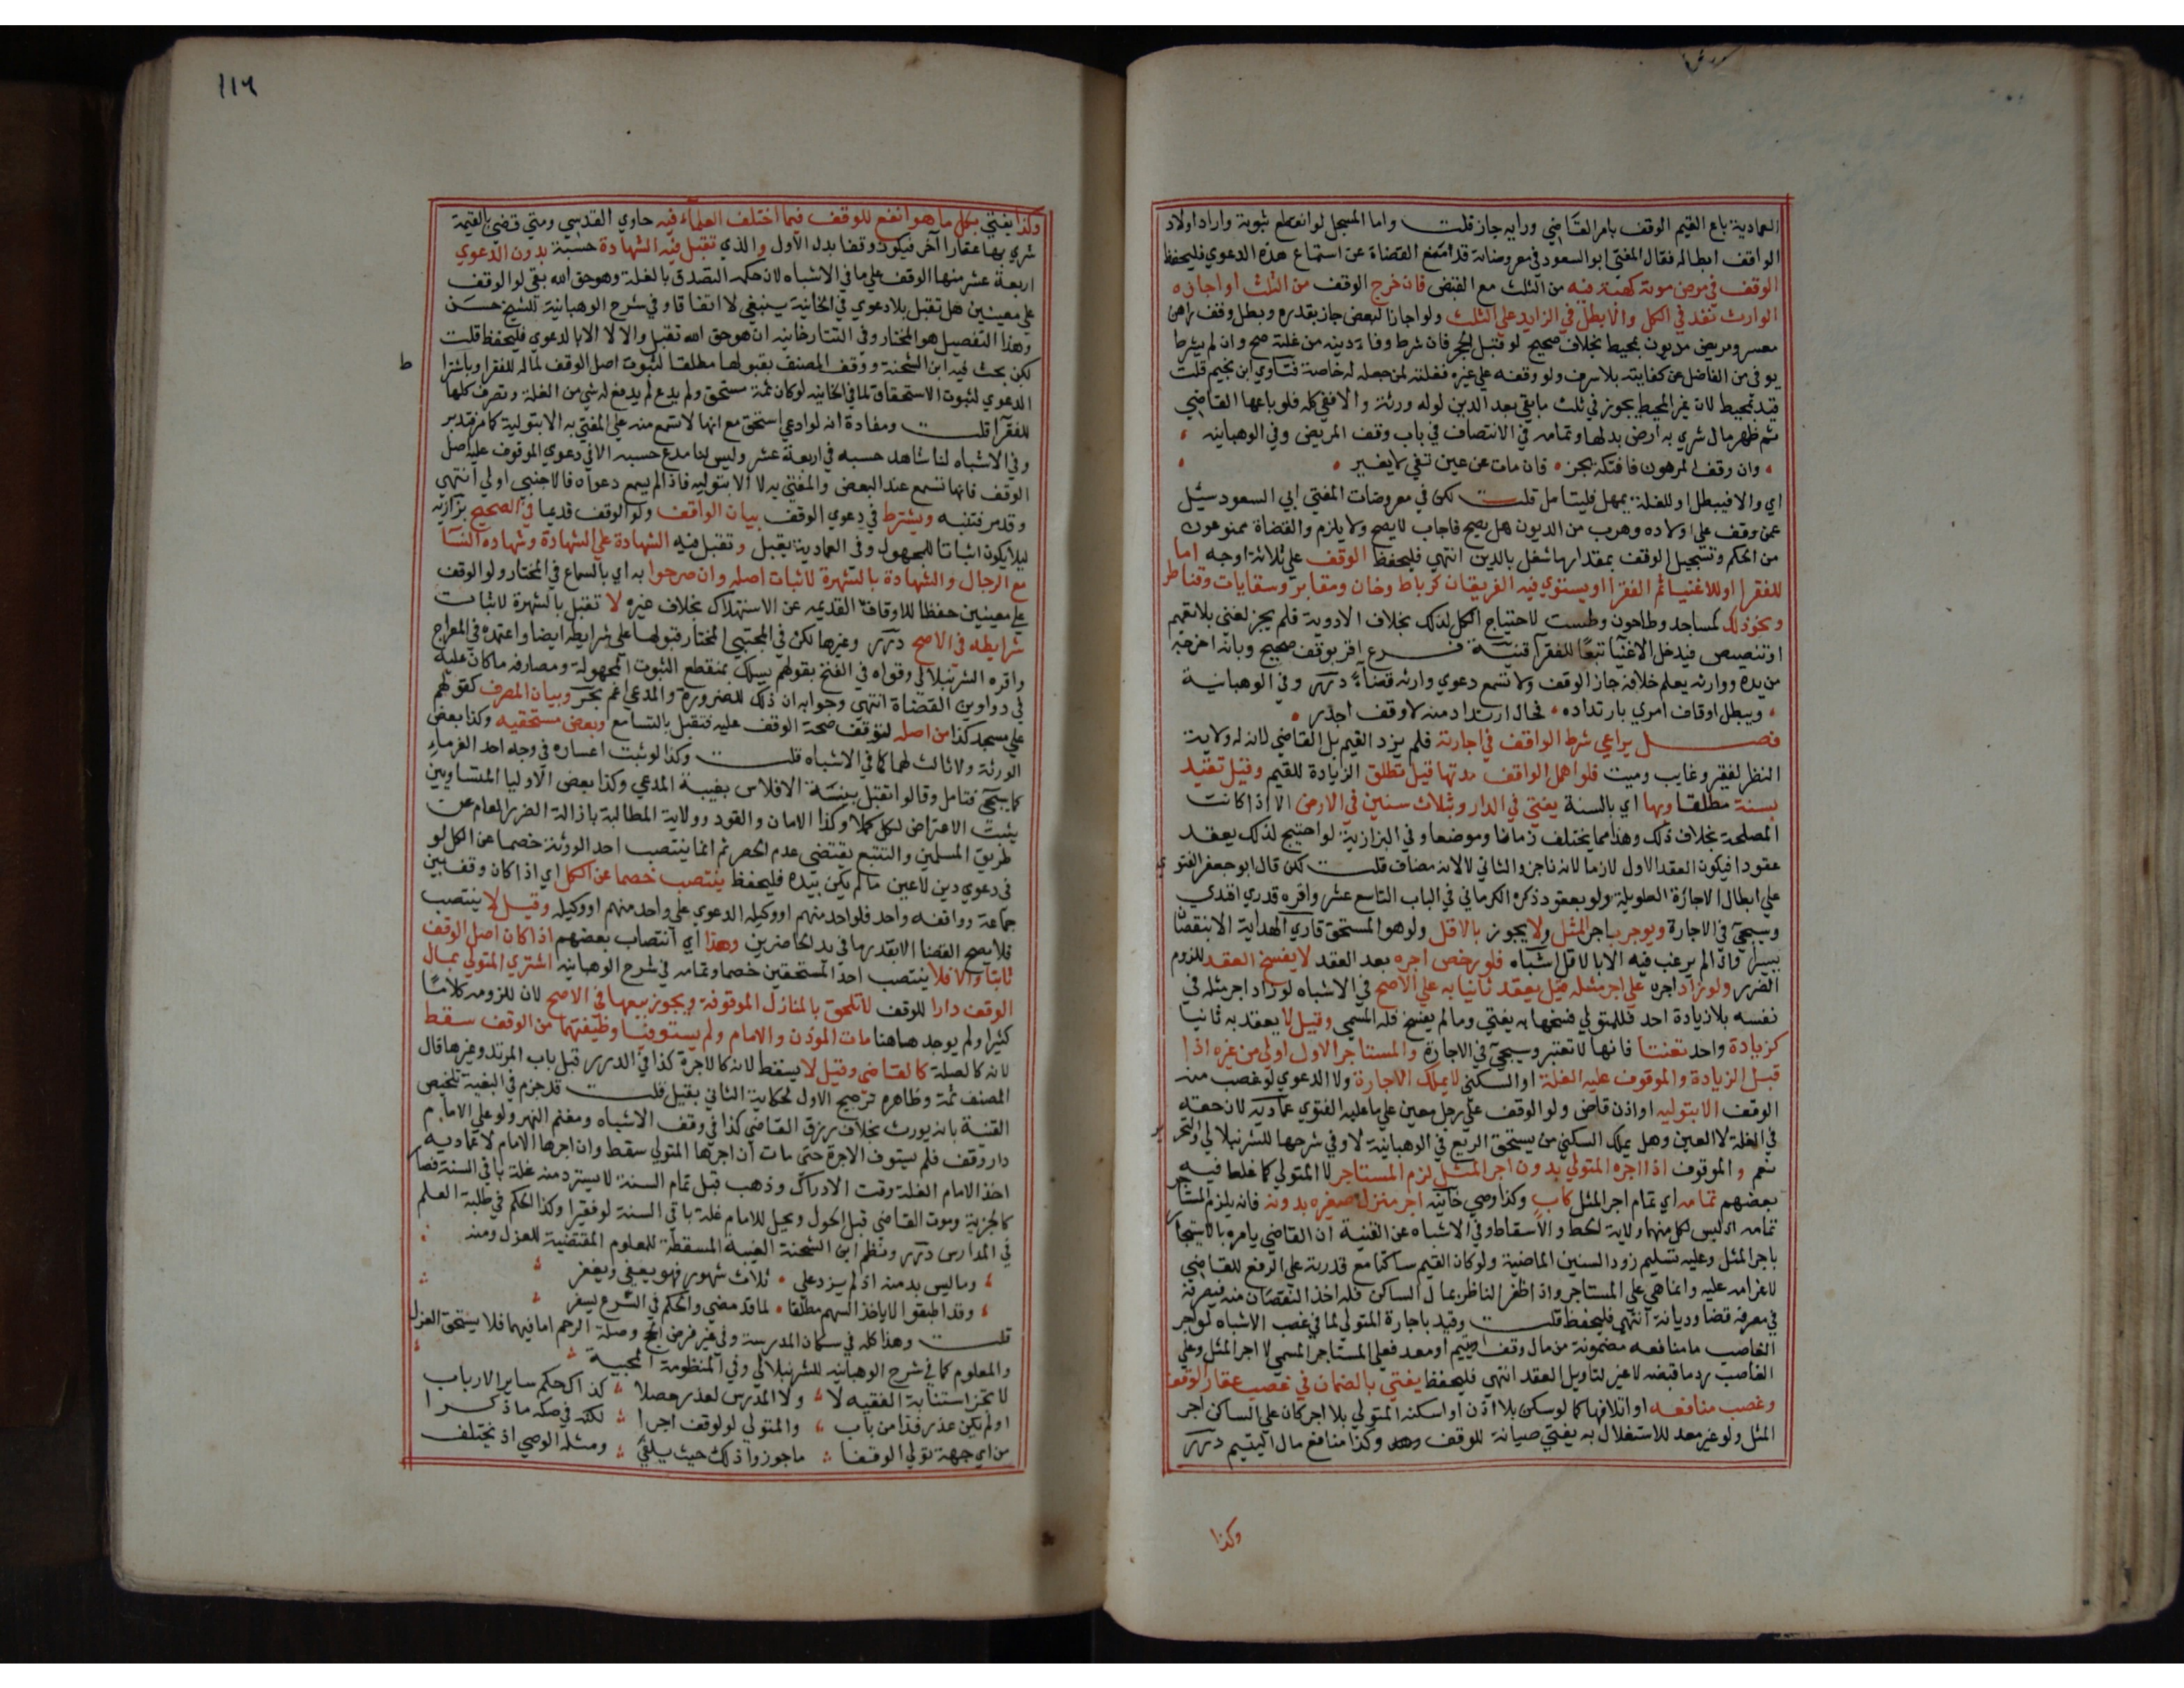 العمادية باع القيم الوقف بامر القاضي ورايه جاز قلت واما المسجل لو انقطع ثبوته واراد اولاد
الواقف ابطاله فقال المفتي ابو السعود في معروضاته قد امتنع القضاة عن استماع هذه الدعوي فليحفظ
الوقف في مرض موته كهبة فيه من الثلث مع القبض فان خرج الوقف من الثلث او اجازه
الوارث نفذ في الكل والا بطل في الزايد علي الثلث ولو اجاز البعض جاز بقدره وبطل وقف راهن
معسر ومريض مديون بمحيط بخلاف صحيح لو قبل الحجر فان شرط وفاء دينه من غلته صح وان لم يشرط
يوفي من الفاضل عن كفايته بلا سرف ولو وقفه علي غيره فغلته لمن جعله له خاصة فتاوي ابن نجيم قلت
قيد بمحيط لان غير المحيط يجوز في ثلث ما بقي بعد الدين لو له ورثة والا ففي كله فلو باعها القاضي
ثم ظهر مال شري به ارض بدلها وتمامه في الانتصاف في باب وقف المريض وفي الوهبانيه
وان وقف المرهون فافتكه يجز فان مات عن عين تفي لا يغير
اي والا فيبطل او للغلة يمهل فليتامل قلت لكن في معروضات المفتي ابي السعود سئل
عمن وقف علي اولاده وهرب من الديون هل يصح فاجاب لا يصح ولا يلزم والقضاة ممنوعون
من الحكم وتسجيل الوقف بمقدار ما شغل بالدين انتهي فليحفظ الوقف علي ثلاثة اوجه اما
للفقرا او للاغنيا ثم الفقرا او يستوي فيه الفريقان كرباط وخان ومقابر وسقايات وقناطر
ونحو ذلك كمساجد وطاحون وطست لاحتياج الكل لذلك بخلاف الادوية فلم يجز لغني بلا تعميم
او تنصيص فيدخل الاغنيا تبعا للفقرا قنية فرع اقر بوقف صحيح وبانه اخرجه
من يده ووارثه يعلم خلافه جاز الوقف ولا تسمع دعوي وارثه قضاء درر وفي الوهبانية
ويبطل اوقاف امري بارتداده فحال ارتداد منه لا وقف اجدر
فصل يراعي شرط الواقف في اجارته فلم يزد القيم بل القاضي لان له ولاية
النظر لفقير وغايب وميت فلو اهمل الواقف مدتها قيل تطلق الزيادة للقيم وقيل تقيد
بسنة مطلقا وبها اي بالسنة يفتي في الدار وبثلاث سنين في الارض الا اذا كانت
المصلحة بخلاف ذلك وهذا مما يختلف زمانا وموضعا وفي البزازية لو احتيج لذلك يعقد
عقودا فيكون العقد الاول لازما لانه ناجز والثاني لا لانه مضاف قلت لكن قال ابو جعفر الفتوي
علي ابطال الاجارة الطويلة ولو بعقود ذكره الكرماني في الباب التاسع عشر واقره قدري افندي
وسيجي في الاجارة ويوجر باجر المثل ولا يجوز بالاقل ولو هو المستحق قاري الهداية الا بنقصان
يسير او اذا لم يرغب فيه الا بالاقل اشباه فلو رخص اجره بعد العقد لا يفسخ العقد للزوم
الضرر ولو زاد اجره علي اجر مثله قيل يعقد ثانيا به علي الاصح في الاشباه لو زاد اجر مثله في
نفسه بلا زيادة احد فللمتولي فسخها به يفتي وما لم يفسخ فله المسمي وقيل لا يعقد به ثانيا
كزيادة واحد تعنتا فانها لا تعتبر وسيجي في الاجارة والمستاجر الاول اولي من غيره اذا
قبل الزيادة والموقوف عليه الغلة او السكني لا يملك الاجارة ولا الدعوي لو غصب منه
الوقف الا بتوليه او اذن قاض ولو الوقف علي رجل معين علي ما عليه الفتوي عماديه لان حقه
في الغلة لا العين وهل يملك السكني من يستحق الريع في الوهبانية لا وفي شرحها للشرنبلالي والتحر
نعم والموقوف اذا اجره المتولي بدون اجر المثل لزم المستاجر لا المتولي كما غلط فيه
بعضهم تمامه اي تمام اجر المثل كاب وكذا وصي خانيه اجر منزل صغيره بدونه فانه يلزم المستاجر
تمامه اذ ليس لكل منهما ولاية الحط والاسقاط وفي الاشباه عن القنية ان القاضي يامره بالاستيجار
باجر المثل وعليه تسليم زود السنين الماضية ولو كان القيم ساكتا مع قدرته علي الرفع للقاضي
لا غرامه عليه وانما هي علي المستاجر واذا ظفر الناظر بمال الساكن فله اخذ النقصان منه فيصرفه
في مصرفه قضا وديانة انتهي فليحفظ قلت وقيد باجارة المتولي لما في غصب الاشباه لو اجر
الغاصب ما منافعه مضمونة من مال وقف او يتيم او معد فعلي المستاجر المسمي لا اجر المثل وعلي
الغاصب رد ما قبضه لا غير لتاويل العقد انتهي فليحفظ يفتي بالضمان في غصب عقار الوقف
وغصب منافعه او اتلافها كما لو سكن بلا اذن او اسكنه المتولي بلا اجر كان علي الساكن اجر
المثل ولو غير معد للاستغلال به يفتي صيانة للوقف وكذا منافع مال اليتيم درر
وكذا
١١٦
وكذا يفتي بكل ما هو انفع للوقف فيما اختلف العلماء فيه حاوي القدسي ومتي قضي بالقيمة
شري بها عقارا آخر فيكون وقفا بدل الاول والذي تقبل فيه الشهادة حسبة بدون الدعوي
اربعة عشر منها الوقف علي ما في الاشباه لان حكمه التصدق بالغلة وهو حق الله بقي لو الوقف
علي معينين هل تقبل بلا دعوي في الخانية ينبغي لا اتفاقا وفي شرح الوهبانية للشيخ حسن
وهذا التفصيل هو المختار وفي التتارخانيه ان هو حق الله تقبل والا لا الا بالدعوي فليحفظ قلت
لكن بحث فيه ابن الشحنة ووفق المصنف بقبولها مطلقا لثبوت اصل الوقف لماله للفقرا وباشترا
ط
الدعوي لثبوت الاستحقاق لما في الخانيه لو كان ثمة مستحق ولم يدع لم يدفع له شي من الغلة وتصرف كلها
للفقرا قلت ومفادة انه لو ادعي استحق مع انها لا تسمع منه علي المفتي به الا بتولية كما مر فتدبر
وفي الاشباه لنا شاهد حسبه في اربعة عشر وليس لنا مدع حسبه الا في دعوي الموقوف عليه اصل
الوقف فانها تسمع عند البعض والمفتي به لا الا بتوليه فاذا لم يسمع دعواه فالاجنبي اولي انتهي
وقد مر فتنبه ويشترط في دعوي الوقف بيان الواقف ولو الوقف قديما في الصحيح بزازيه
ليلا يكون اثباتا للمجهول وفي العمادية يقبل وتقبل فيه الشهادة علي الشهادة وشهاده النسا
مع الرجال والشهادة بالشهرة لاثبات اصله وان صرحوا به اي بالسماع في المختار ولو الوقف
علي معينين حفظا للاوقاف القديمه عن الاستهلاك بخلاف غيره لا تقبل بالشهرة لاثبات
شرايطه في الاصح درر وغيرها لكن في المجتبي المختار قبولها علي شرايطه ايضا واعتمده في المعراج
واقره الشرنبلالي وقواه في الفتح بقولهم يسلك بمنقطع الثبوت المجهولة ومصارفه ما كان عليه
في دواوين القضاة انتهي وجوابه ان ذلك للضرورة والمدعي اعم بحر وبيان المصرف كقولهم
علي مسجد كذا من اصله لتوقف صحة الوقف عليه فتقبل بالتسامع وبعض مستحقيه وكذا بعض
الورثة ولا ثالث لهما كما في الاشباه قلت وكذا لو ثبت اعساره في وجه احد الغرماء
كما سيجي فتامل وقالوا تقبل بينة الافلاس بغيبة المدعي وكذا بعض الاوليا المتساويين
يثبت الاعتراض لكل كملا وكذا الامان والقود وولاية المطالبة بازالة الضرر العام عن
طريق المسلمين والتتبع يقتضي عدم الحصر ثم انما ينتصب احد الورثة خصما عن الكل لو
في دعوي دين لا عين ما لم يكن بيده فليحفظ ينتصب خصما عن الكل اي اذا كان وقف بين
جماعة وواقفه واحد فلو احد منهم او وكيله الدعوي علي واحد منهم او وكيله وقيل لا ينتصب
فلا يصح القضا الا بقدر ما في يد الحاضرين وهذا اي انتصاب بعضهم اذا كان اصل الوقف
ثابتا والا فلا ينتصب احد المستحقين خصما وتمامه في شرح الوهبانيه اشتري المتولي بمال
الوقف دارا للوقف لا تلحق بالمنازل الموقوفة ويجوز بيعها في الاصح لان للزومه كلاما
كثيرا ولم يوجد هاهنا مات الموذن والامام ولم يستوفيا وظيفتهما من الوقف سقط
لانه كالصلة كالقاضي وقيل لا يسقط لانه كالاجرة كذا في الدرر قبل باب المرتد وغيرها قال
المصنف ثمة وظاهره ترجيح الاول لحكاية الثاني بقيل قلت قد جزم في البغية تلخيص
القنية بانه يورث بخلاف رزق القاضي كذا في وقف الاشباه ومغنم النهر ولو علي الامام
دار وقف فلم يستوف الاجرة حتي مات ان اجرها المتولي سقط وان اجرها الامام لا عماديه
اخذ الامام الغلة وقت الادراك وذهب قبل تمام السنة لا يسترد منه غلة باقي السنة فصار
كالجزية وموت القاضي قبل الحول ويحل للامام غلة باقي السنة لو فقيرا وكذا الحكم في طلبة العلم
في المدارس درر ونظم ابن الشحنة الغيبة المسقطة للمعلوم المقتضية للعزل ومنه
وما ليس بد منه اذ لم يزد علي ثلاث شهور فهو يعفي ويغفر
وقد اطبقوا لا ياخذ السهم مطلقا لما قد مضي والحكم في الشرع يسفر
قلت وهذا كله في سكان المدرسة وفي غير فرض الحج وصلة الرحم اما فيهما فلا يستحق العزل
والمعلوم كما في شرح الوهبانيه للشرنبلالي وفي المنظومة المحبية
لا تجز استنابة الفقيه لا ولا المدرس لعذر حصلا كذاك حكم ساير الارباب
او لم يكن عذر فذا من باب والمتولي لو لوقف اجرا لكنه في صكه ما ذكرا
من اي جهة تولي الوقفا ما جوزوا ذلك حيث يلفي ومثله الوصي اذ يختلف